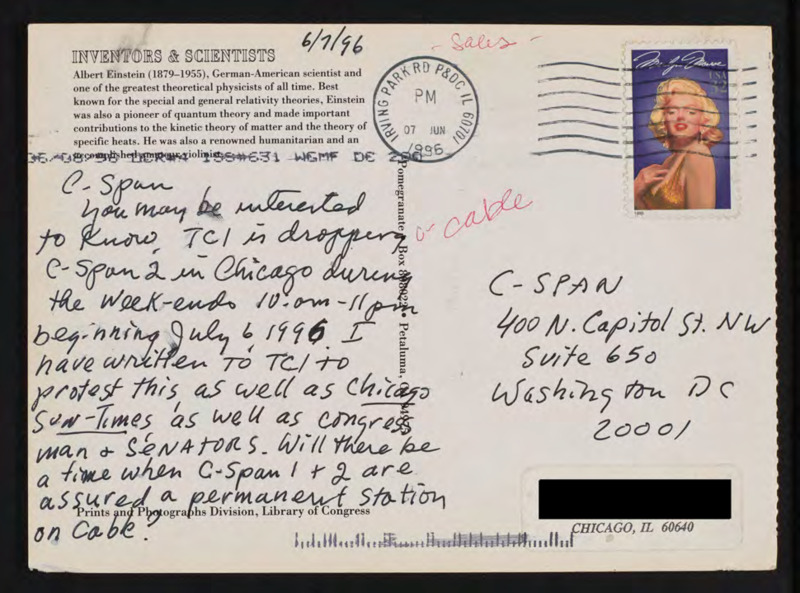 6/7/96
- Sales -
INVENTORS & SCIENTISTS
Albert Einstein (1879–1955), German-American scientist and
one of the greatest theoretical physicists of all time. Best
known for the special and general relativity theories, Einstein
was also a pioneer of quantum theory and made important
contributions to the kinetic theory of matter and the theory of
specific heats. He was also a renowned humanitarian and an
accomplished violinist.
IRVING PARK RD P&DC IL 60701
PM
07 JUN
1996
USA
32
C-Span
You may be interested
to know, TCI is dropping
C-Span 2 in Chicago during
the week-ends 10:am-11pm
beginning July 6, 1996. I
have written to TCI to
protest this, as well as Chicago
Sun-Times as well as congress
man + SENATORS. Will there be
a time when C-Span 1 + 2 are
assured a permanent station
on Cable?
Prints and Photographs Division, Library of Congress
Pomegranate • Box • Petaluma, CA
cable
C-SPAN
400 N. Capitol St. NW
Suite 650
Washington DC
20001
CHICAGO, IL 60640